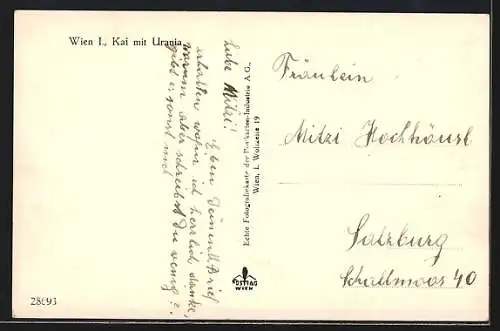 Wien I., Kai mit Urania
Liebe Mitzi!
Eben Deinen l. Brief
erhalten wofür ich herzlich danke,
warum aber schreibst Du wenig?
gibt es sonst
Echte Fotografiekarte der Postkarten-Industrie A. G.,
Wien, I. Wollzeile 19
Fräulein
Mitzi Hochhäusl
Salzburg
Schallmoos 40
POSTIAG
WIEN
28693